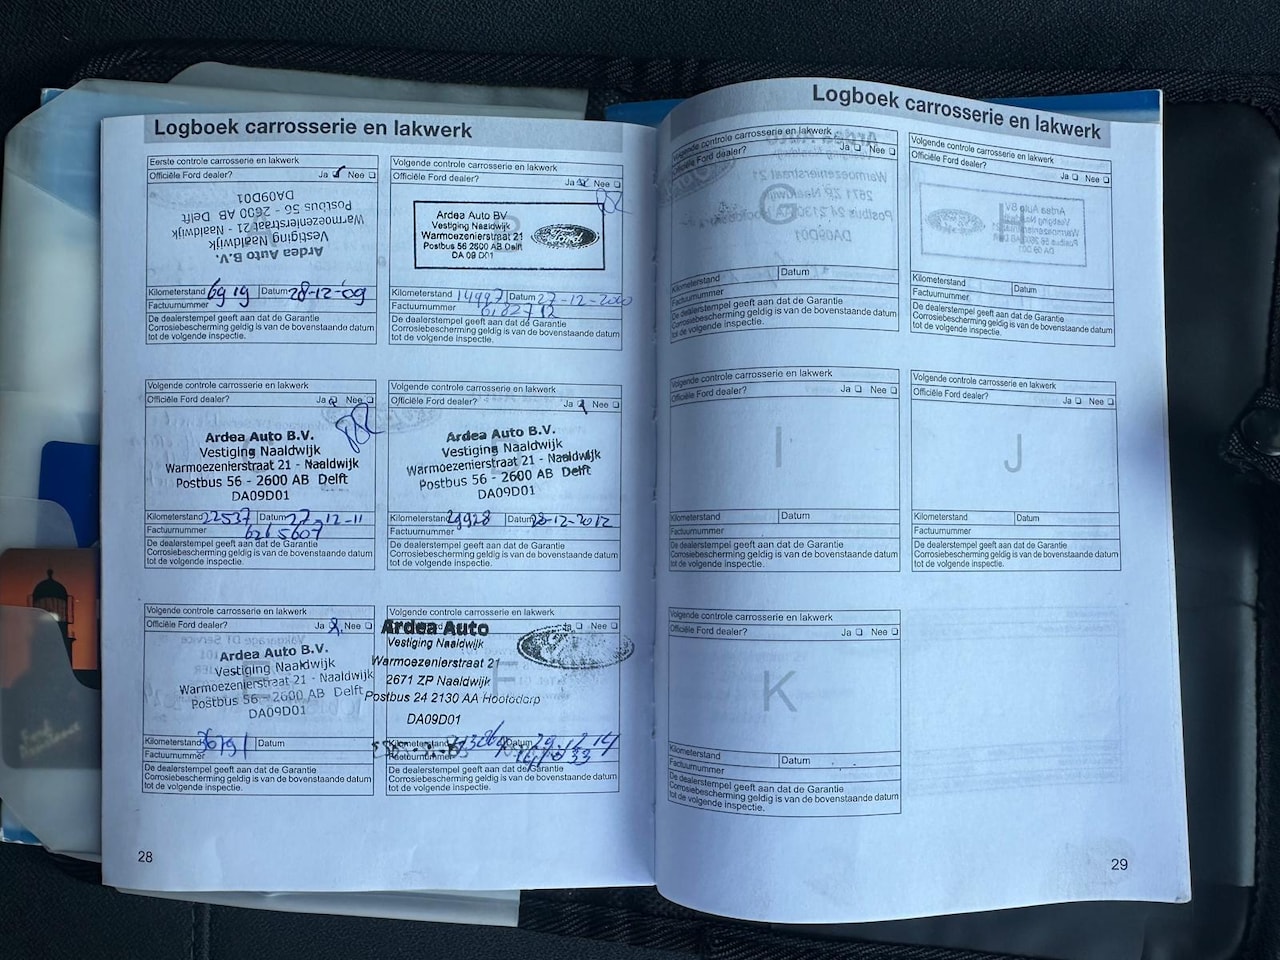 Logboek carrosserie en lakwerk
Eerste controle carrosserie en lakwerk
Officiële Ford dealer? Ja Nee
Ardea Auto B.V.
Vestiging Naaldwijk
Warmoezenierstraat 21 - Naaldwijk
Postbus 56 - 2600 AB Delft
DA09D01
Kilometerstand 6919 Datum 28-12-09
Factuurnummer
De dealerstempel geeft aan dat de Garantie
Corrosiebescherming geldig is van de bovenstaande datum
tot de volgende inspectie.
Volgende controle carrosserie en lakwerk
Officiële Ford dealer? Ja Nee
Ardea Auto BV
Vestiging Naaldwijk
Warmoezenierstraat 21
Postbus 56 2600 AB Delft
DA 09 D01
Ford
Kilometerstand 14997 Datum 27-12-2010
Factuurnummer
De dealerstempel geeft aan dat de Garantie
Corrosiebescherming geldig is van de bovenstaande datum
tot de volgende inspectie.
Volgende controle carrosserie en lakwerk
Officiële Ford dealer? Ja Nee
Ardea Auto B.V.
Vestiging Naaldwijk
Warmoezenierstraat 21 - Naaldwijk
Postbus 56 - 2600 AB Delft
DA09D01
Kilometerstand 22537 Datum 27-12-11
Factuurnummer 6215607
De dealerstempel geeft aan dat de Garantie
Corrosiebescherming geldig is van de bovenstaande datum
tot de volgende inspectie.
Volgende controle carrosserie en lakwerk
Officiële Ford dealer? Ja Nee
Ardea Auto B.V.
Vestiging Naaldwijk
Warmoezenierstraat 21 - Naaldwijk
Postbus 56 - 2600 AB Delft
DA09D01
Kilometerstand 29928 Datum 28-12-2012
Factuurnummer
De dealerstempel geeft aan dat de Garantie
Corrosiebescherming geldig is van de bovenstaande datum
tot de volgende inspectie.
Volgende controle carrosserie en lakwerk
Officiële Ford dealer? Ja Nee
E
Ardea Auto B.V.
Vestiging Naaldwijk
Warmoezenierstraat 21 - Naaldwijk
Postbus 56 - 2600 AB Delft
DA09D01
Kilometerstand 36791 Datum
Factuurnummer
De dealerstempel geeft aan dat de Garantie
Corrosiebescherming geldig is van de bovenstaande datum
tot de volgende inspectie.
Volgende controle carrosserie en lakwerk
Ja Nee
F
Ardea Auto
Vestiging Naaldwijk
Warmoezenierstraat 21
2671 ZP Naaldwijk
Postbus 24 2130 AA Hoofddorp
DA09D01
Kilometerstand Datum
Factuurnummer
De dealerstempel geeft aan dat de Garantie
Corrosiebescherming geldig is van de bovenstaande datum
tot de volgende inspectie.
28
Logboek carrosserie en lakwerk
Volgende controle carrosserie en lakwerk
Officiële Ford dealer? Ja Nee
G
Kilometerstand Datum
Factuurnummer
De dealerstempel geeft aan dat de Garantie
Corrosiebescherming geldig is van de bovenstaande datum
tot de volgende inspectie.
Volgende controle carrosserie en lakwerk
Officiële Ford dealer? Ja Nee
H
Kilometerstand Datum
Factuurnummer
De dealerstempel geeft aan dat de Garantie
Corrosiebescherming geldig is van de bovenstaande datum
tot de volgende inspectie.
Volgende controle carrosserie en lakwerk
Officiële Ford dealer? Ja Nee
I
Kilometerstand Datum
Factuurnummer
De dealerstempel geeft aan dat de Garantie
Corrosiebescherming geldig is van de bovenstaande datum
tot de volgende inspectie.
Volgende controle carrosserie en lakwerk
Officiële Ford dealer? Ja Nee
J
Kilometerstand Datum
Factuurnummer
De dealerstempel geeft aan dat de Garantie
Corrosiebescherming geldig is van de bovenstaande datum
tot de volgende inspectie.
Volgende controle carrosserie en lakwerk
Officiële Ford dealer? Ja Nee
K
Kilometerstand Datum
Factuurnummer
De dealerstempel geeft aan dat de Garantie
Corrosiebescherming geldig is van de bovenstaande datum
tot de volgende inspectie.
29